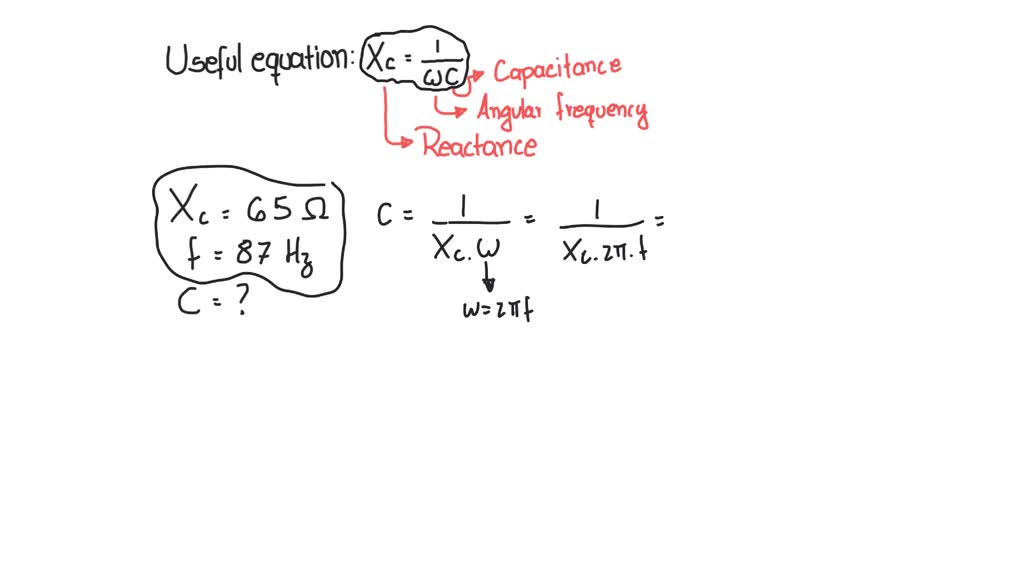 Useful equation: Xc = 1/ωC
Capacitance
Angular frequency
Reactance
Xc = 65 Ω
f = 87 Hz
C = ?
C = 1/Xc.ω = 1/Xc.2π.f =
ω=2πf